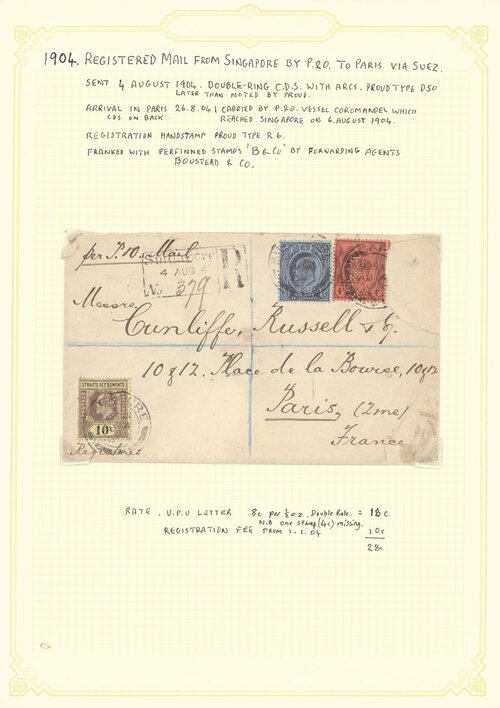 1904. REGISTERED MAIL FROM SINGAPORE BY P.&O. TO PARIS VIA SUEZ.
SENT 4 AUGUST 1904. DOUBLE-RING C.D.S. WITH ARCS. PROUD TYPE D50
LATER THAN NOTED BY PROUD.
ARRIVAL IN PARIS 26.8.04 | CARRIED BY P.&O. VESSEL COROMANDEL WHICH
CDS ON BACK. REACHED SINGAPORE ON 6. AUGUST 1904.
REGISTRATION HANDSTAMP PROUD TYPE R6.
FRANKED WITH PERFINNED STAMPS 'B & Co' BY FORWARDING AGENTS
BOUSTEAD & Co.
per P. & O Mail
SINGAPORE
4 AUG
R
No 379
Messrs
Cunliffe, Russell & Co.
10 & 12. Place de la Bourse, 10 & 12
Paris, (2me)
France
STRAITS SETTLEMENTS
10c
Registered
RATE. U.P.U LETTER 8c per ½oz. Double Rate. = 18c
N.B one stamp (4c) missing.
REGISTRATION FEE FROM 1.1.04 10c
28c